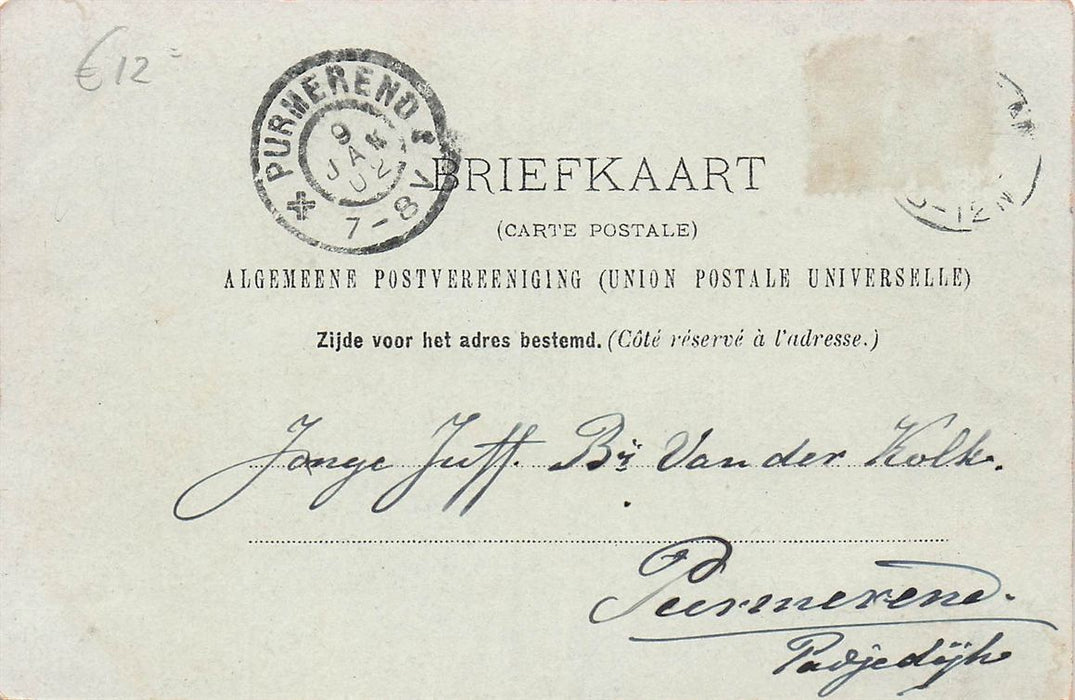 € 12
PURMEREND
9 JA 02
7-8V
BRIEFKAART
(CARTE POSTALE)
ALGEMEENE POSTVEREENIGING (UNION POSTALE UNIVERSELLE)
Zijde voor het adres bestemd. (Côté réservé à l'adresse.)
Jonge Juff. Van der Kolk.
Purmerend.
Padjedijk